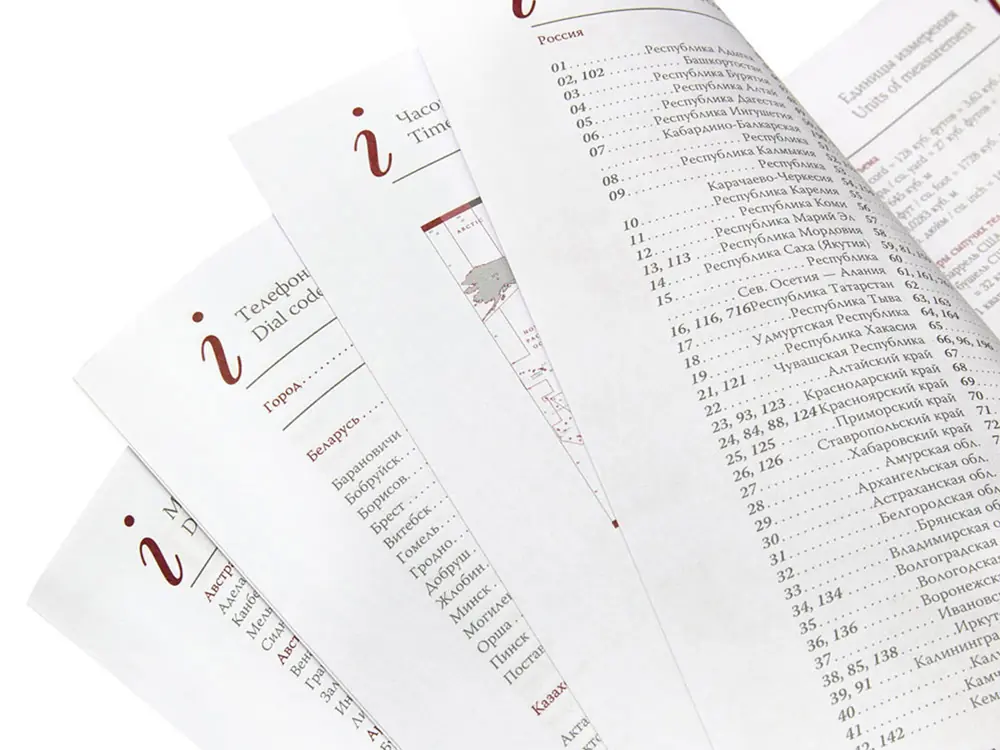 i
Австра
Аделаи
Канбе
Мель
Сидн
Авст
Вен
Гра
Зал
i
Телефон
Dial code
Город
Беларусь
Барановичи
Бобруйск
Борисов
Брест
Витебск
Гомель
Гродно
Добруш
Жлобин
Минск
Могилев
Орша
Пинск
Постав
Казах
Акта
i
Часо
Time
ARCTIC
i
Россия
01.......... Республика Адыгея
02, 102.......... Башкортостан
03.......... Республика Бурятия
04.......... Республика Алтай
05.......... Республика Дагестан
06.......... Республика Ингушетия
07.......... Кабардино-Балкарская
Республика
08.......... Республика Калмыкия
09.......... Республика
Карачаево-Черкесия
10.......... Республика Карелия
11.......... Республика Коми
12.......... Республика Марий Эл
13, 113.......... Республика Мордовия
14.......... Республика Саха (Якутия)
15.......... Республика
Сев. Осетия — Алания
16, 116, 716 Республика Татарстан
17.......... Республика Тыва
18.......... Удмуртская Республика
19.......... Республика Хакасия
21, 121.......... Чувашская Республика
22.......... Алтайский край
23, 93, 123.......... Краснодарский край
24, 84, 88, 124 Красноярский край
25, 125.......... Приморский край
26, 126.......... Ставропольский край
27.......... Хабаровский край
28.......... Амурская обл.
29.......... Архангельская обл.
30.......... Астраханская обл.
31.......... Белгородская обл.
32.......... Брянская о
33.......... Владимирская о
34, 134.......... Волгоградская
35.......... Вологодская
36, 136.......... Воронежск
37.......... Ивановс
38, 85, 138.......... Иркут
39, 91.......... Калининград
40.......... Калу
41.......... Камч
42, 142.......... Кем
54, 1
55,
56
57
58
59, 81
60
61, 161
62
63, 163
64, 164
65
66, 96, 196
67
68
69
70
71
72
Единицы измерения
Units of measurement